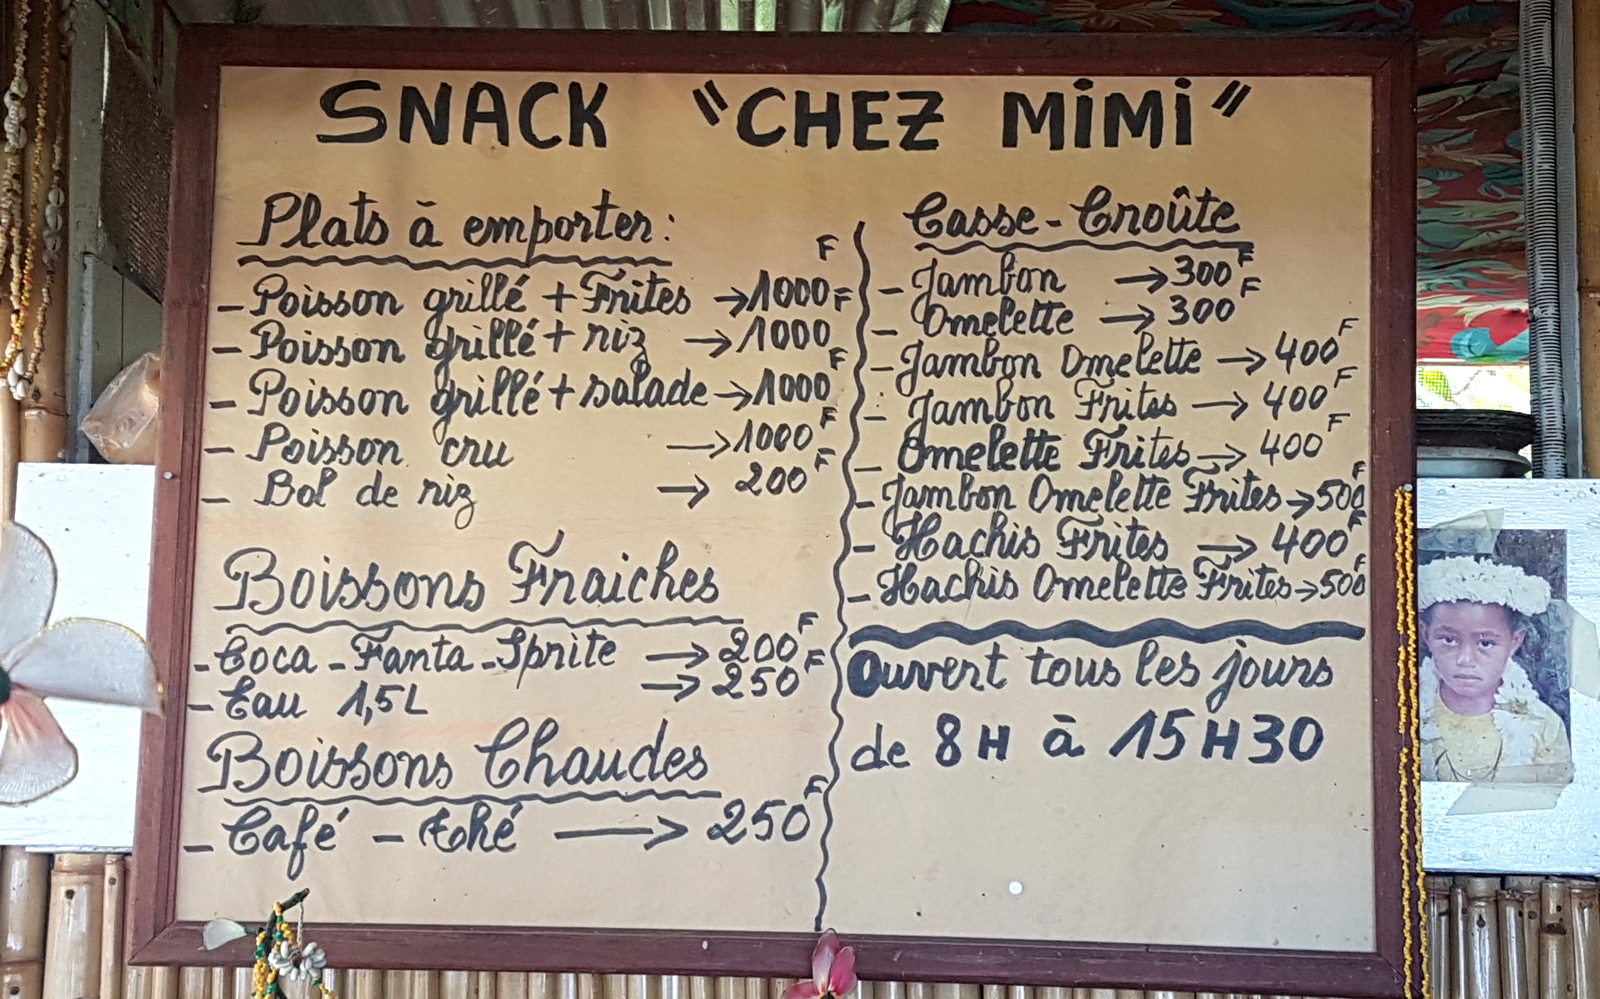 SNACK "CHEZ MIMI"
Plats à emporter:
- Poisson grillé + Frites → 1000F
- Poisson grillé + riz → 1000F
- Poisson grillé + salade → 1000F
- Poisson cru → 1000F
- Bol de riz → 200F
Boissons Fraiches
- Coca - Fanta - Sprite → 200F
- Eau 1,5L → 250F
Boissons Chaudes
- Café - thé → 250F
Casse-Croûte
- Jambon → 300F
- Omelette → 300F
- Jambon Omelette → 400F
- Jambon Frites → 400F
- Omelette Frites → 400F
- Jambon Omelette Frites → 500F
- Hachis Frites → 400F
- Hachis Omelette Frites → 500F
Ouvert tous les jours
de 8H à 15H30